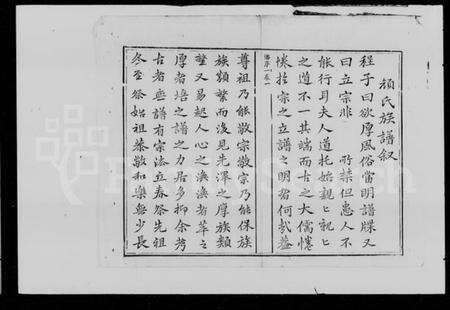 顏氏族譜叙
程子曰欲厚風俗當明譜牒又
曰立宗非 所禁但患人不
能行耳夫人道托始親〻親〻
之道不一其端而古之大儒惓
惓於宗之立譜之明者何哉蓋
譜序 卷一
尊祖乃能敬宗敬宗乃能保族
族類繁而後見先澤之厚族類
繁又易起人心之渙渙者萃之
厚者培之譜之力居多抑余考
古者無譜有宗法立春祭先祖
冬至祭始祖恭敬和樂無少長